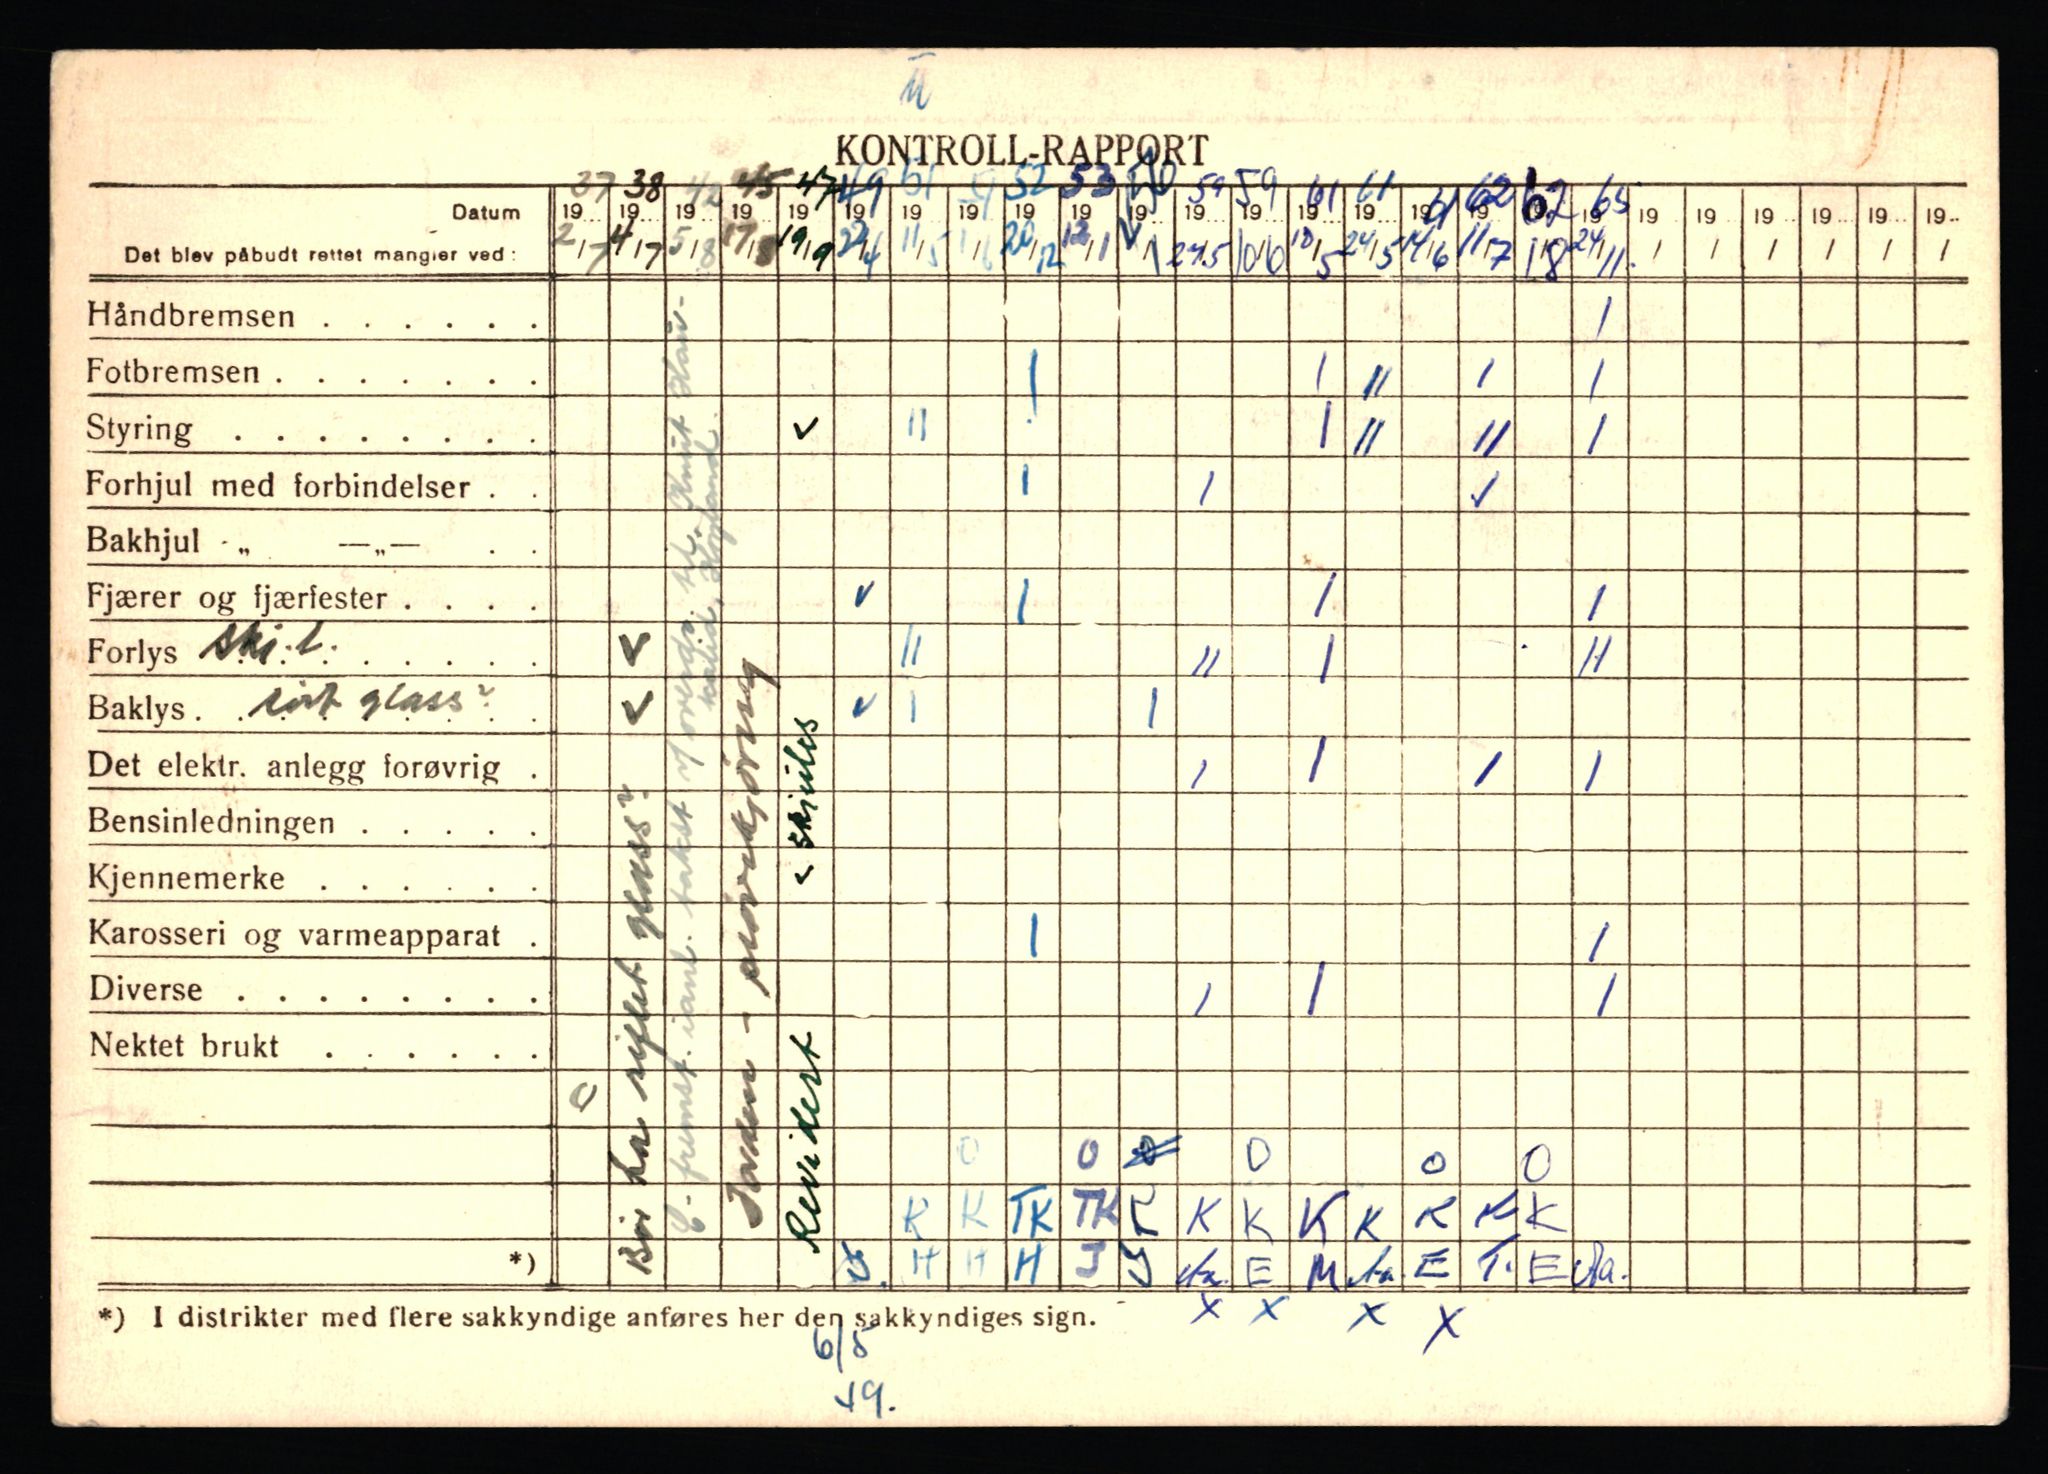 II
KONTROLL-RAPPORT
37 38 42 45 47 49 51 52 53 59 59 61 61 61 62 62 65
Datum 19 19 19 19 19 19 19 19 19 19 19 19 19 19 19 19 19 19 19 19 19 19 19 19
Det blev påbudt rettet mangler ved: 2/7 4/7 5/8 17/8 19/9 22/4 11/5 1/6 20/12 12/1 27/5 10/6 10/5 24/5 14/6 11/7 1/8 24/11 / / / / / /
Håndbremsen . . . . . . /
Fotbremsen . . . . . . . / / // / /
Styring . . . . . . . . ✓ // / // // /
Forhjul med forbindelser . . / / ✓
Bakhjul „ —„— . .
Fjærer og fjærfester . . . . ✓ / / /
Forlys ski.l. . . . . . . ✓ // // / //
Baklys . rist glass? ✓ ✓ / /
Det elektr. anlegg forøvrig . / / / /
Bensinledningen . . . .
Kjennemerke . . . . . ✓
Karosseri og varmeapparat . / /
Diverse . . . . . . . . / / /
Nektet brukt . . . . . .
Bør ha riflet glass?
E-fremst. ianl. takst v/overdr. til Knut Hau-
kalid, Hogland.
Jorden - prøvekjøring
Revidert ✓ skiules
0
0 0 0 0 0 0
K K TK TK K K K K K K K K
*) H H H J J E M E T. E
*) I distrikter med flere sakkyndige anføres her den sakkyndiges sign.
X X X X
6/5
49.